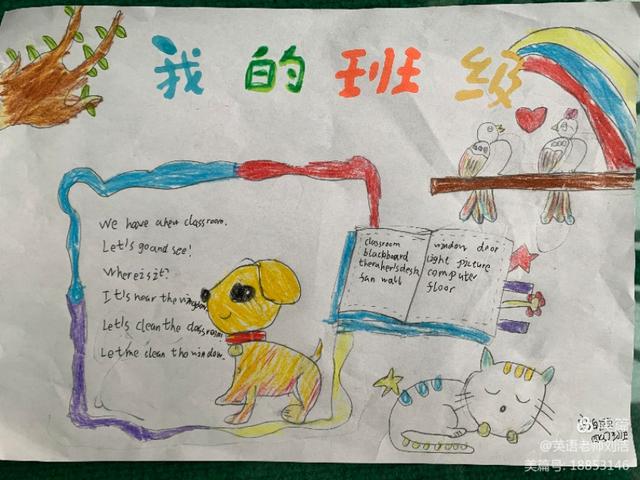 我的班级
We have a new classroom.
Let's go and see!
Where is it?
It's near the window.
Let's clean the classroom.
Let me clean the window.
classroom
blackboard
theraher'sdesk
fan wall
window door
light picture
computer
floor
美篇
@英语老师刘浩
美篇号: 18853146